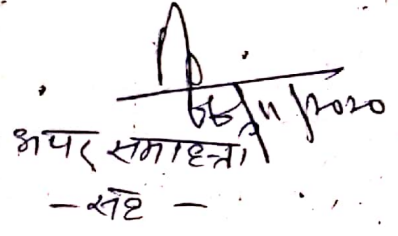 11/2020
अपर समाहर्त्ता
- सह -